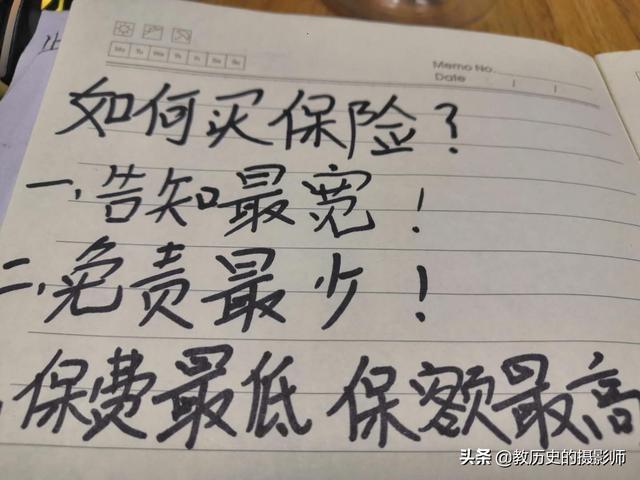 Mo Tu We Th Fr Sa Su
Memo No.
Date / /
如何买保险?
一、告知最宽!
二、免责最少!
保费最低 保额最高
头条 @教历史的摄影师